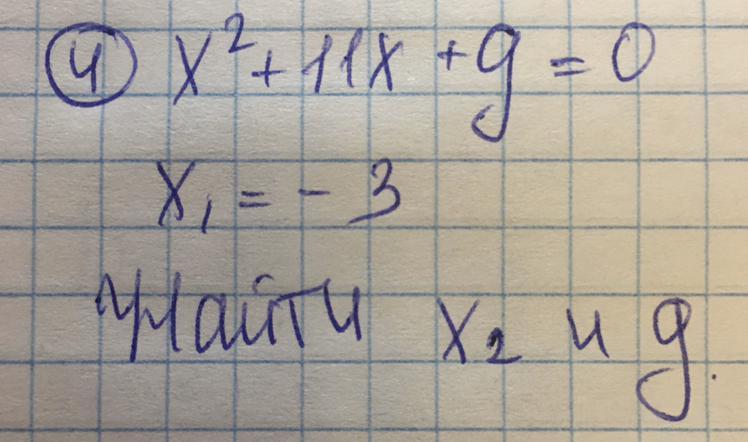 ④ x² + 11x + g = 0
x₁ = - 3
Найти x₂ и g.